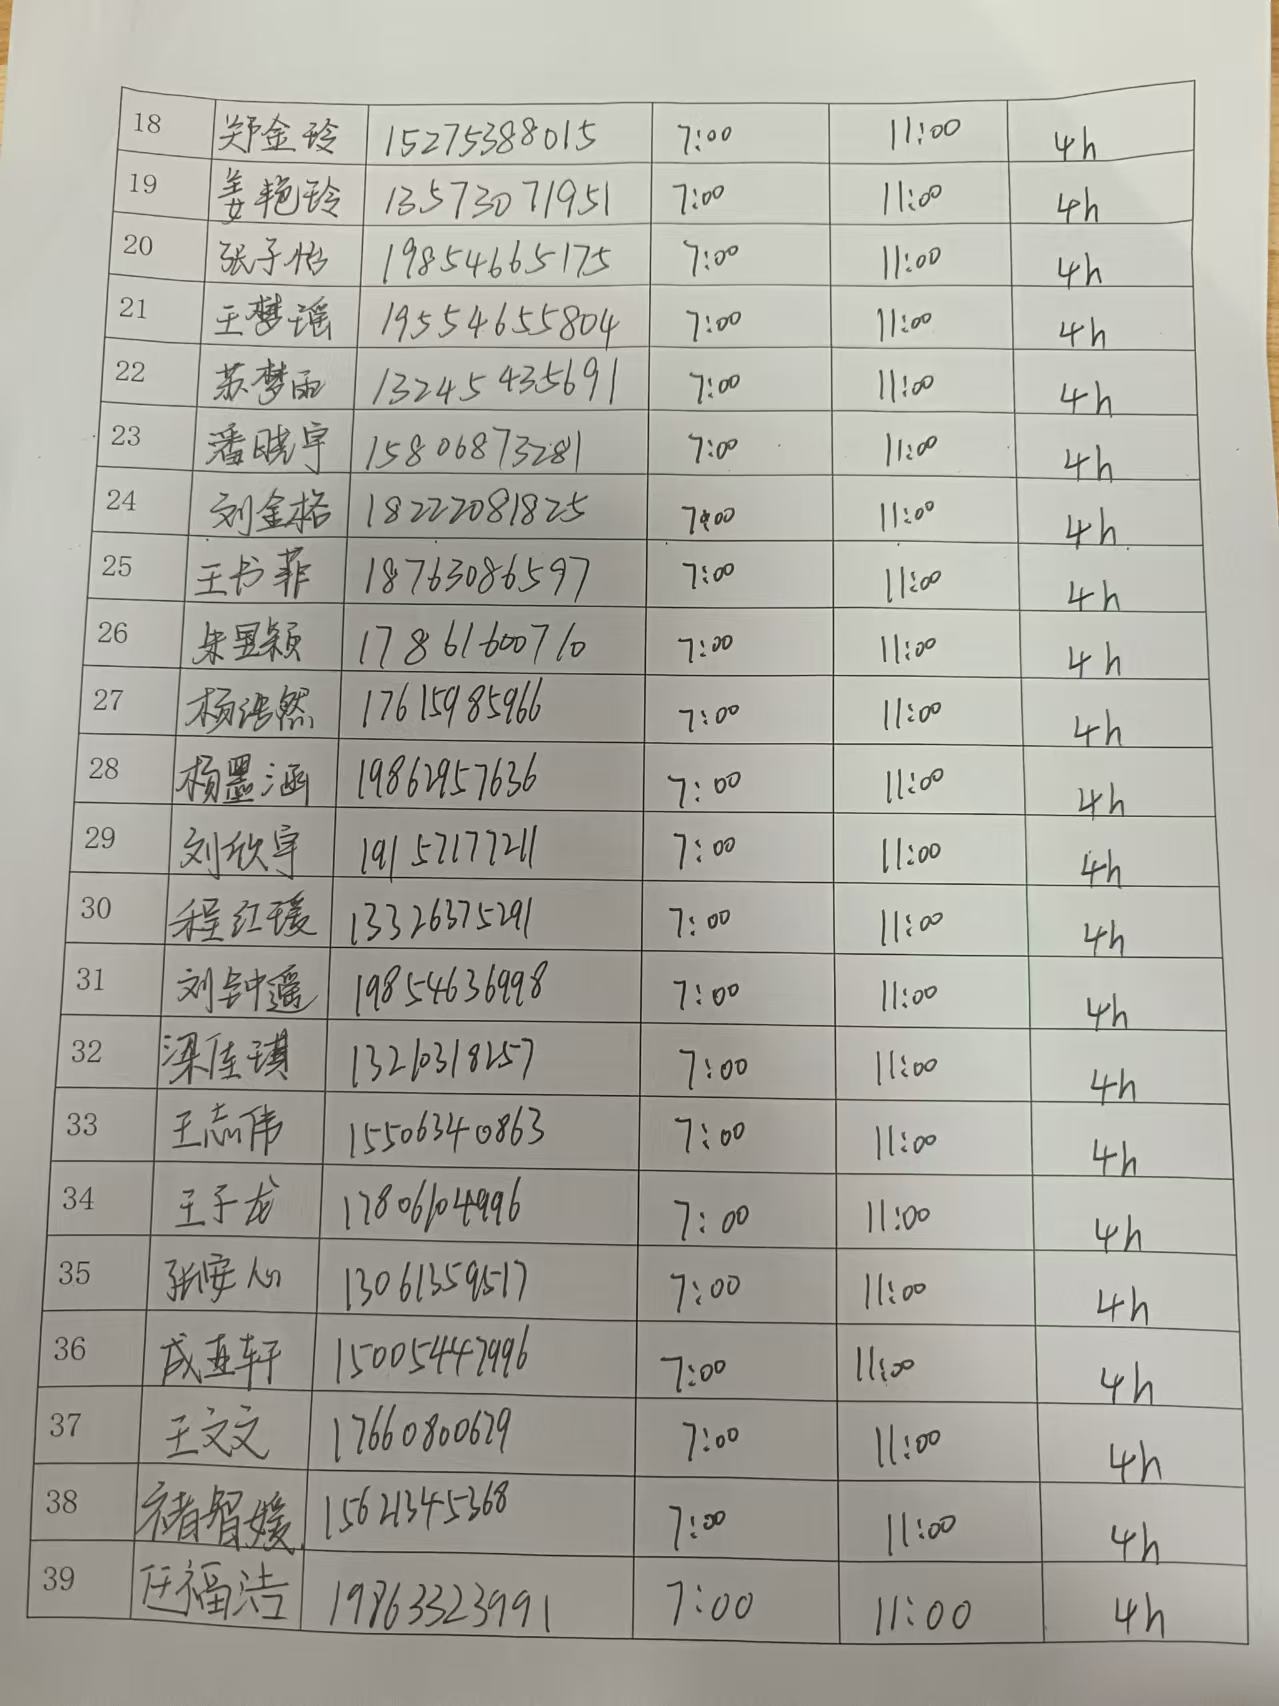 18 郑金玲 15275388015 7:00 11:00 4h
19 姜艳玲 13573071951 7:00 11:00 4h
20 张子怡 19854665175 7:00 11:00 4h
21 王梦瑶 19554655804 7:00 11:00 4h
22 苏梦雨 13245435691 7:00 11:00 4h
23 潘晓宇 15806873281 7:00 11:00 4h
24 刘金格 18222081825 7:00 11:00 4h
25 王书菲 18763086597 7:00 11:00 4h
26 朱昱颖 17861600710 7:00 11:00 4h
27 杨浩然 17615985966 7:00 11:00 4h
28 杨墨涵 19862957636 7:00 11:00 4h
29 刘欣宇 19157177211 7:00 11:00 4h
30 程红瑗 13326375291 7:00 11:00 4h
31 刘钟遥 19854636998 7:00 11:00 4h
32 梁佳琪 13210318257 7:00 11:00 4h
33 王志伟 15506340863 7:00 11:00 4h
34 王子龙 17806104996 7:00 11:00 4h
35 张安心 13061359517 7:00 11:00 4h
36 15005447996 7:00 11:00 4h
37 王文文 17660800679 7:00 11:00 4h
38 褚智媛 15621345368 7:00 11:00 4h
39 任福洁 19863323991 7:00 11:00 4h